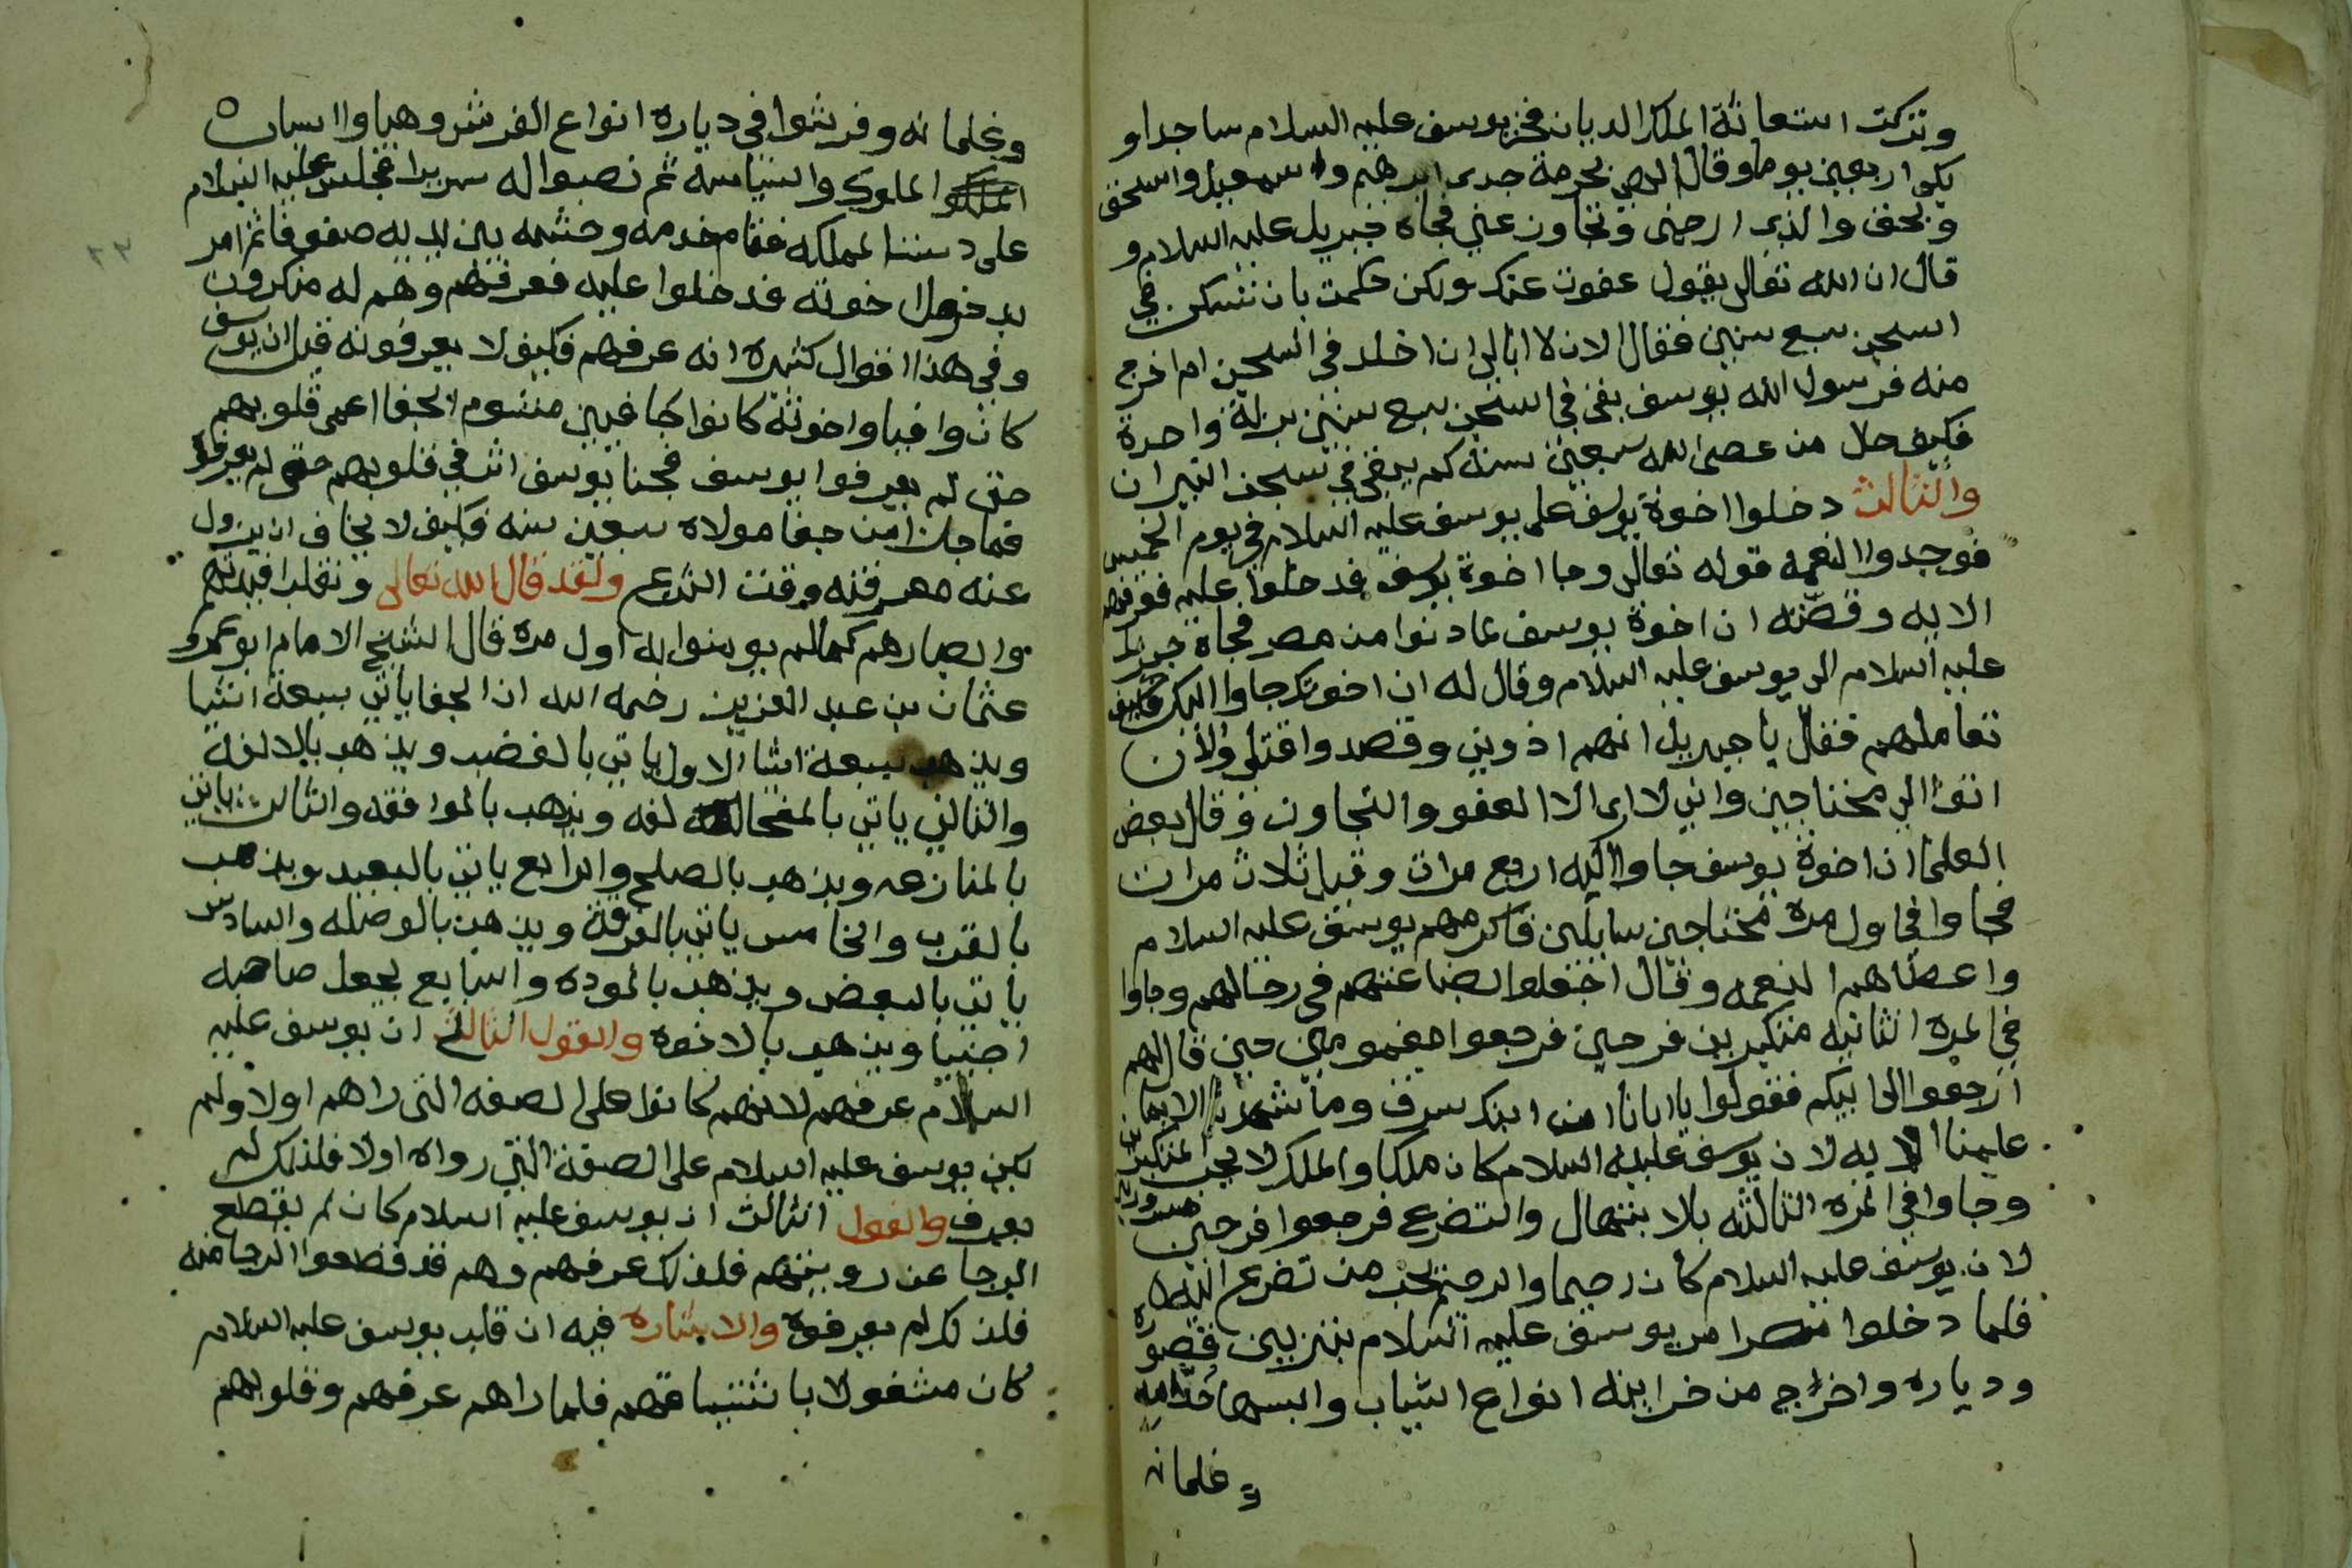 وتركت استعانة الملك الديان فخر يوسف عليه السلام ساجدا و
بكى اربعين يوما وقال الهي بحرمة جدي ابرهيم واسمعيل واسحق
وبحق والدي ارحمني وتجاوز عني فجاه جبريل عليه السلام و
قال ان الله تعالى يقول عفوت عنك ولكن حكمت بان تسكن في
السجن سبع سنين فقال الان لا ابالي ان اخلد في السجن ام اخرج
منه فرسول الله يوسف بقى في السجن سبع سنين بزلة واحدة
فكيف حال من عصى الله سبعين سنه كم يبقى في سجن النيران
والثالث دخلوا اخوة يوسف على يوسف عليه السلام في يوم الخميس
فوجدوا النعمه قوله تعالى وجا اخوة يوسف فدخلوا عليه فعرفهم
الايه وقصته ان اخوة يوسف لما دنوا من مصر فجاه جبريل
عليه السلام الى يوسف عليه السلام وقال له ان اخوتك جاوا اليك فكيف
تعاملهم فقال يا جبريل انهم اذوني وقصدوا قتلي والان
اتوا الي محتاجين واني لا ارى الا العفو والتجاوز وقال بعض
العلما ان اخوة يوسف جاوا اليه اربع مرات وقيل ثلاث مرات
فجاوا في اول مره محتاجين سايلين فاكرمهم يوسف عليه السلام
واعطاهم النعمه وقال اجعلوا بضاعتهم في رحالهم وجاوا
في المره الثانيه متكبرين فرحين فرجعوا مغمومين حين قال لهم
ارجعوا الى ابيكم فقولوا يا ابانا ان ابنك سرق وما شهدنا الا بما
علمنا الايه لان يوسف عليه السلام كان ملكا والملك لا يحب المتكبرين
وجاوا في المره الثالثه بالابتهال والتضرع فرجعوا فرحين مسرورين
لان يوسف عليه السلام كان رحيما والرحيم يحب من تضرع اليه
فلما دخلوا مصر امر يوسف عليه السلام بتزيين قصوره
ودياره واخراج من خزاينه انواع الثياب والبسها خدامه
وغلمانه
وغلمانه وفرشوا في دياره انواع الفرش وهياوا اسباب
الملوك والسياسه ثم نصبوا له سريرا فجلس عليه السلام
على دست المملكه فقام خدمه وحشمه بين يديه صفوفا ثم امر
بدخول اخوته فدخلوا عليه فعرفهم وهم له منكرون
وفي هذا اقوال كثيره انه عرفهم فكيف لا يعرفونه قيل ان يوسف
كان وافيا واخوته كانوا جافيين فشوم الجفا اعمى قلوبهم
حتى لم يعرفوا يوسف فجفا يوسف اثر في قلوبهم حتى لم يعرفوه
فما حال من جفا مولاه سبعين سنه فكيف لا يخاف ان يزول
عنه معرفته وقت النزع ولقد قال الله تعالى ونقلب افيدتهم
وابصارهم كما لم يومنوا به اول مره قال الشيخ الامام ابو عمرو
عثمان بن عبد العزيز رحمه الله ان الجفا ياتي بسبعة اشيا
ويذهب بسبعة اشيا الاول ياتي بالغضب ويذهب بالالفة
والثاني ياتي بالمخالفه ويذهب بالموافقه والثالث ياتي
بالمنازعه ويذهب بالصلح والرابع ياتي بالبعيد ويذهب
بالقرب والخامس ياتي بالفرقة ويذهب بالوصله والسادس
ياتي بالبغض ويذهب بالموده والسابع يجعل صاحبه
اجنبيا ويذهب بالاخوه والقول الثالث ان يوسف عليه
السلام عرفهم لانهم كانوا على الصفه التي راهم اولا ولم
يكن يوسف عليه السلام على الصفة التي رواه اولا فلذلك لم
يعرف والقول الثالث ان يوسف عليه السلام كان لم يقطع
الرجا عن رويتهم فلذلك عرفهم وهم قد قطعوا الرجا منه
فلذلك لم يعرفوه والاشاره فيه ان قلب يوسف عليه السلام
كان مشغولا باشتياقهم فلما راهم عرفهم وقلوبهم